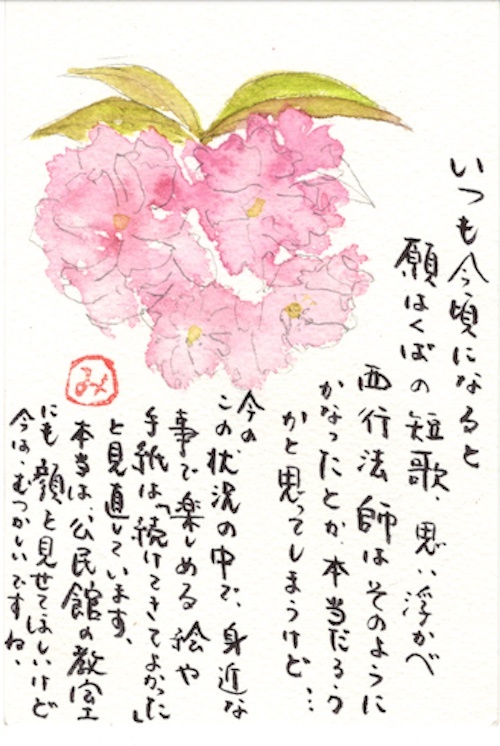 いつも今頃になると
願はくばの短歌、思い浮かべ
西行法師はそのように
かなったとか本当だろう
かと思ってしまうけど…
今の
この状況の中で、身近な
事で楽しめる絵や
手紙は「続けてきてよかった」
と見直しています、
本当は、公民館の教室
にも顔を見せてほしいけど
今は、むつかしいですね、
み